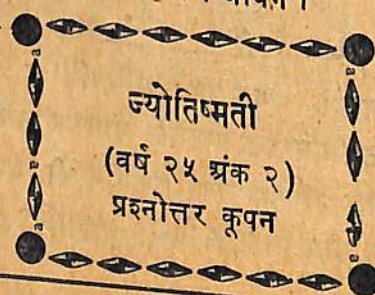 ज्योतिष्मती
(वर्ष २५ अंक २)
प्रश्नोत्तर कूपन